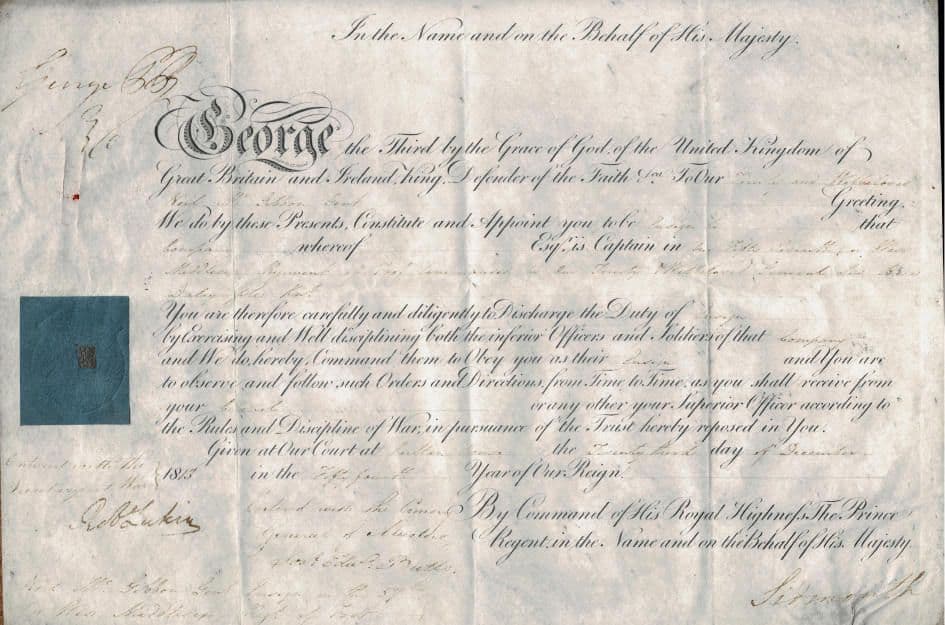 In the Name and on the Behalf of His Majesty.
George P R
George the Third by the Grace of God, of the United Kingdom of
Great Britain and Ireland, King, Defender of the Faith &c. To Our Trusty and Wellbeloved
Gent Greeting,
We do by these Presents, Constitute and Appoint you to be Ensign that
Company whereof Esqr. is Captain in
Middlesex Regiment of Foot commanded by Our Trusty & Wellbeloved General
Dalrymple
You are therefore carefully and diligently to Discharge the Duty of Ensign
by Exercising and Well disciplining both the inferior Officers and Soldiers of that Company
and We do hereby Command them to Obey you as their Ensign and You are
to observe and follow such Orders and Directions, from Time to Time, as you shall receive from
your or any other your Superior Officer according to
the Rules and Discipline of War, in pursuance of the Trust hereby reposed in You.
Given at Our Court at Carlton House the day of December
1813 in the Fifty fourth Year of Our Reign.
Entered with the
Secretary at War
Robt Lukin
Entered with the
General of
By Command of His Royal Highness The Prince
Regent, in the Name and on the Behalf of His Majesty.
Sidmouth
Gent Ensign in the 57th
or West Middlesex Regt of Foot